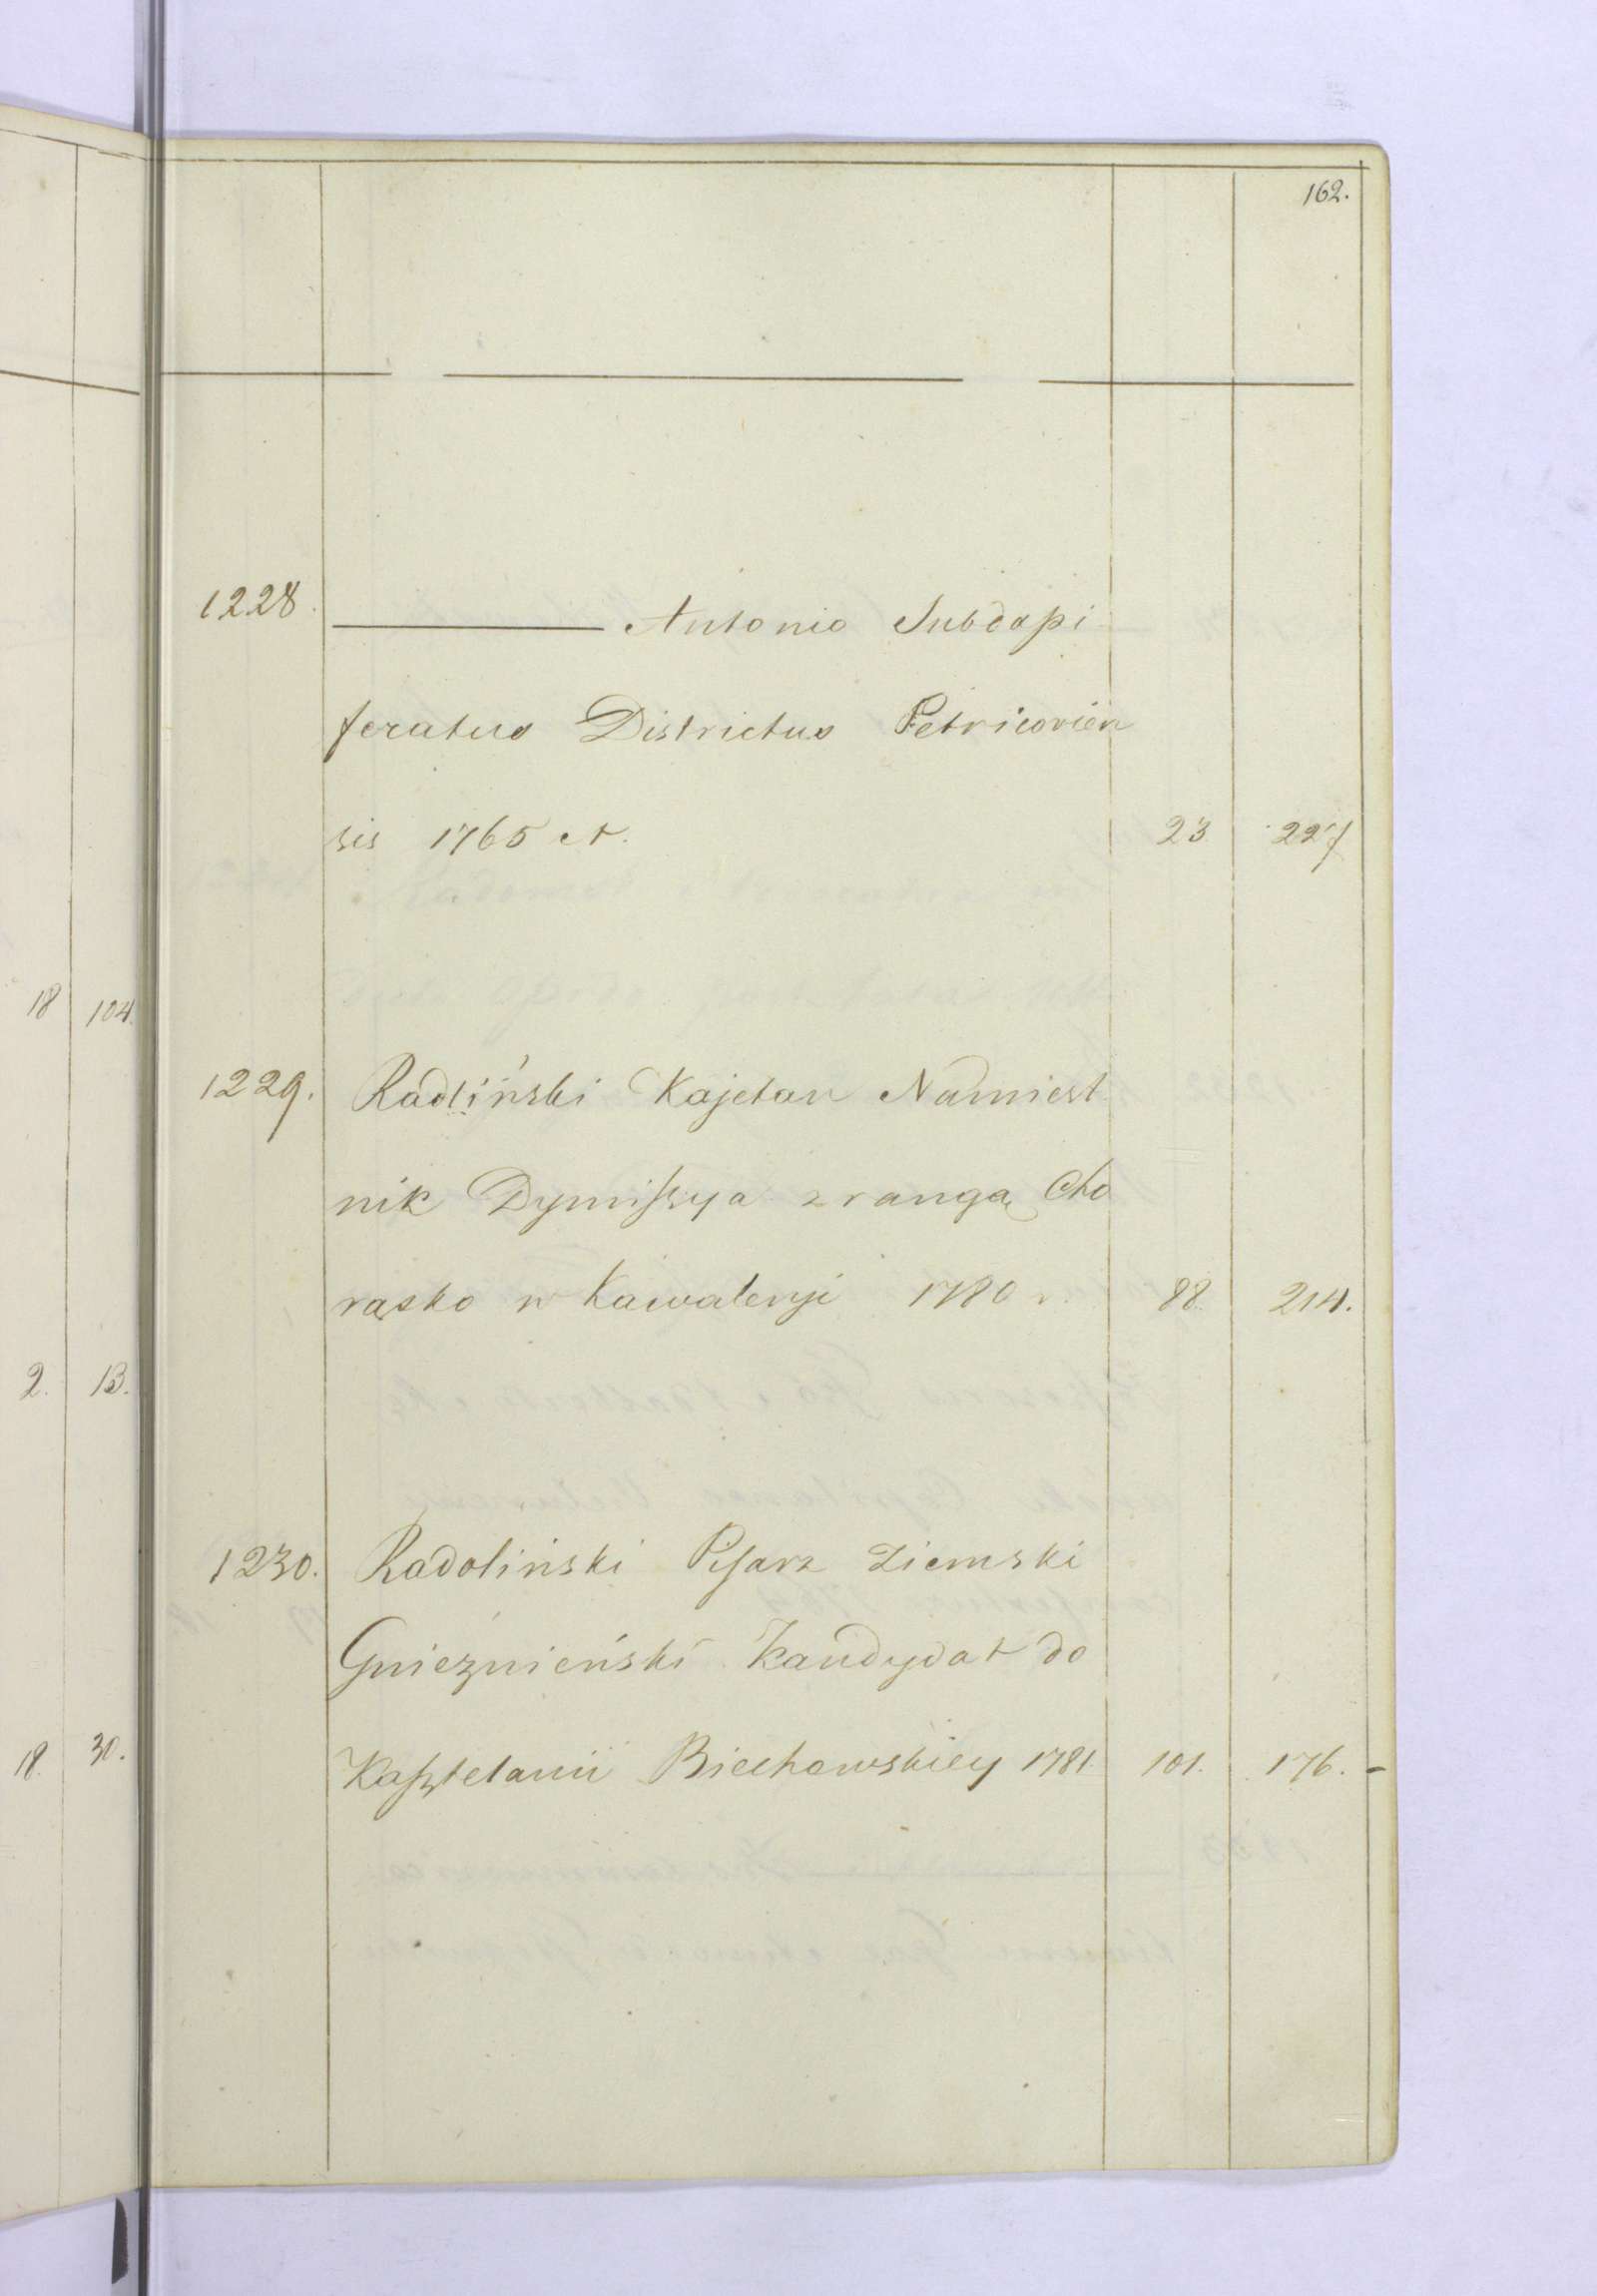 162.
1228. ——— Antonio Subdapi
feratus Districtus Petricovien
sis 1765 A. 23 227
18 104.
1229. Radliński Kajetan Namiest
nik Dymissya z rangą Cho
rąsko w Kawaleryi 1780 r. 88. 214.
2. 13.
1230. Radoliński Pisarz Ziemski
Gnieznieński Kandydat do
Kasztelanii Biechowskiey 1781. 101. 176. -
18. 30.